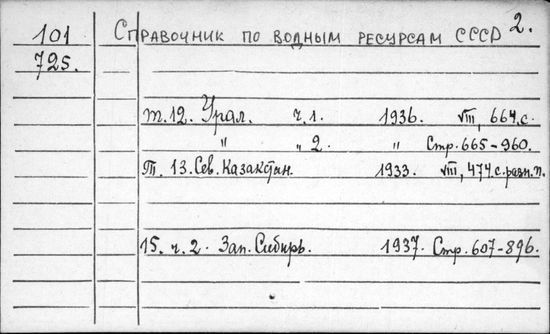 101 Справочник по водным ресурсам СССР 2.
725.
т.12. Урал. ч.1. 1936. VIII, 664 с.
" " 2. " Стр. 665-960.
Т. 13. Сев. Казакстан. 1933. VIII, 474 с. разн. п.
15. ч. 2. Зап. Сибирь. 1937. Стр. 607-896.